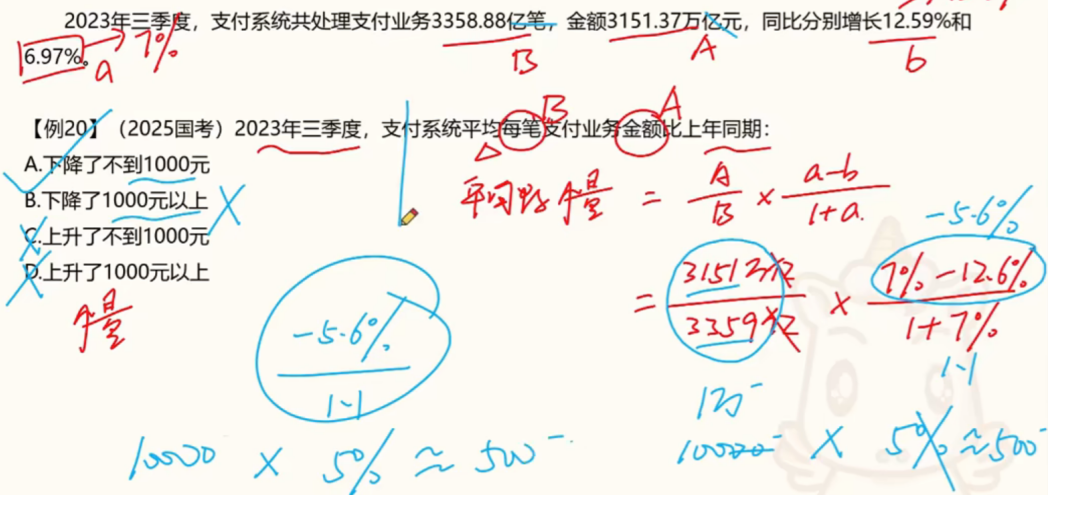 2023年三季度，支付系统共处理支付业务3358.88亿笔，金额3151.37万亿元，同比分别增长12.59%和
6.97%。
a → 7%
B
A
b
B A
【例20】（2025国考）2023年三季度，支付系统平均每笔支付业务金额比上年同期：
A.下降了不到1000元
B.下降了1000元以上
C.上升了不到1000元
D.上升了1000元以上
△
增量 = A/B × a-b/1+a
-5.6%
= 3151万亿/3359亿 × 7%-12.6%/1+7%
1.1
增量
-5.6%/1.1
1万-
10000 × 5% ≈ 500-
10000- × 5% ≈ 500-